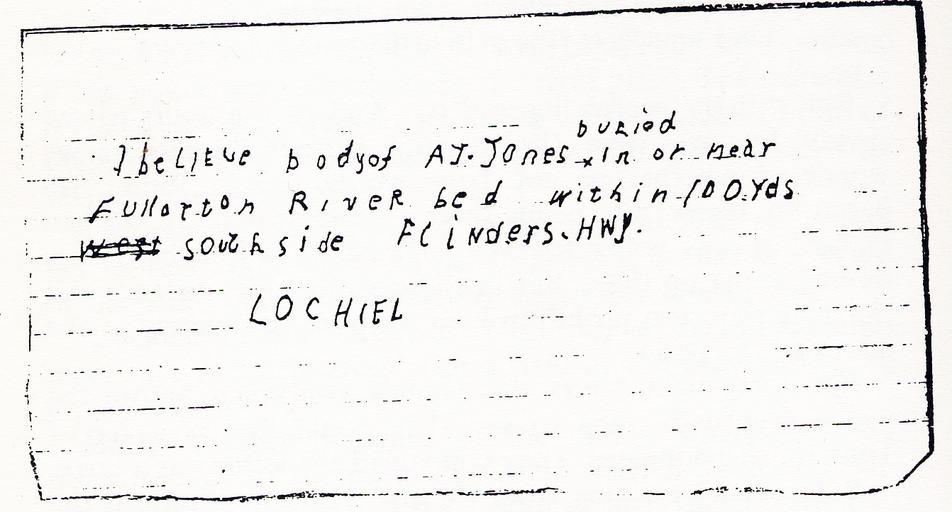 buried
I believe bodyof A.J. Jones x in or near
Fullarton River bed within 100.Yds
West south side Flinders. HWY.
LOCHIEL